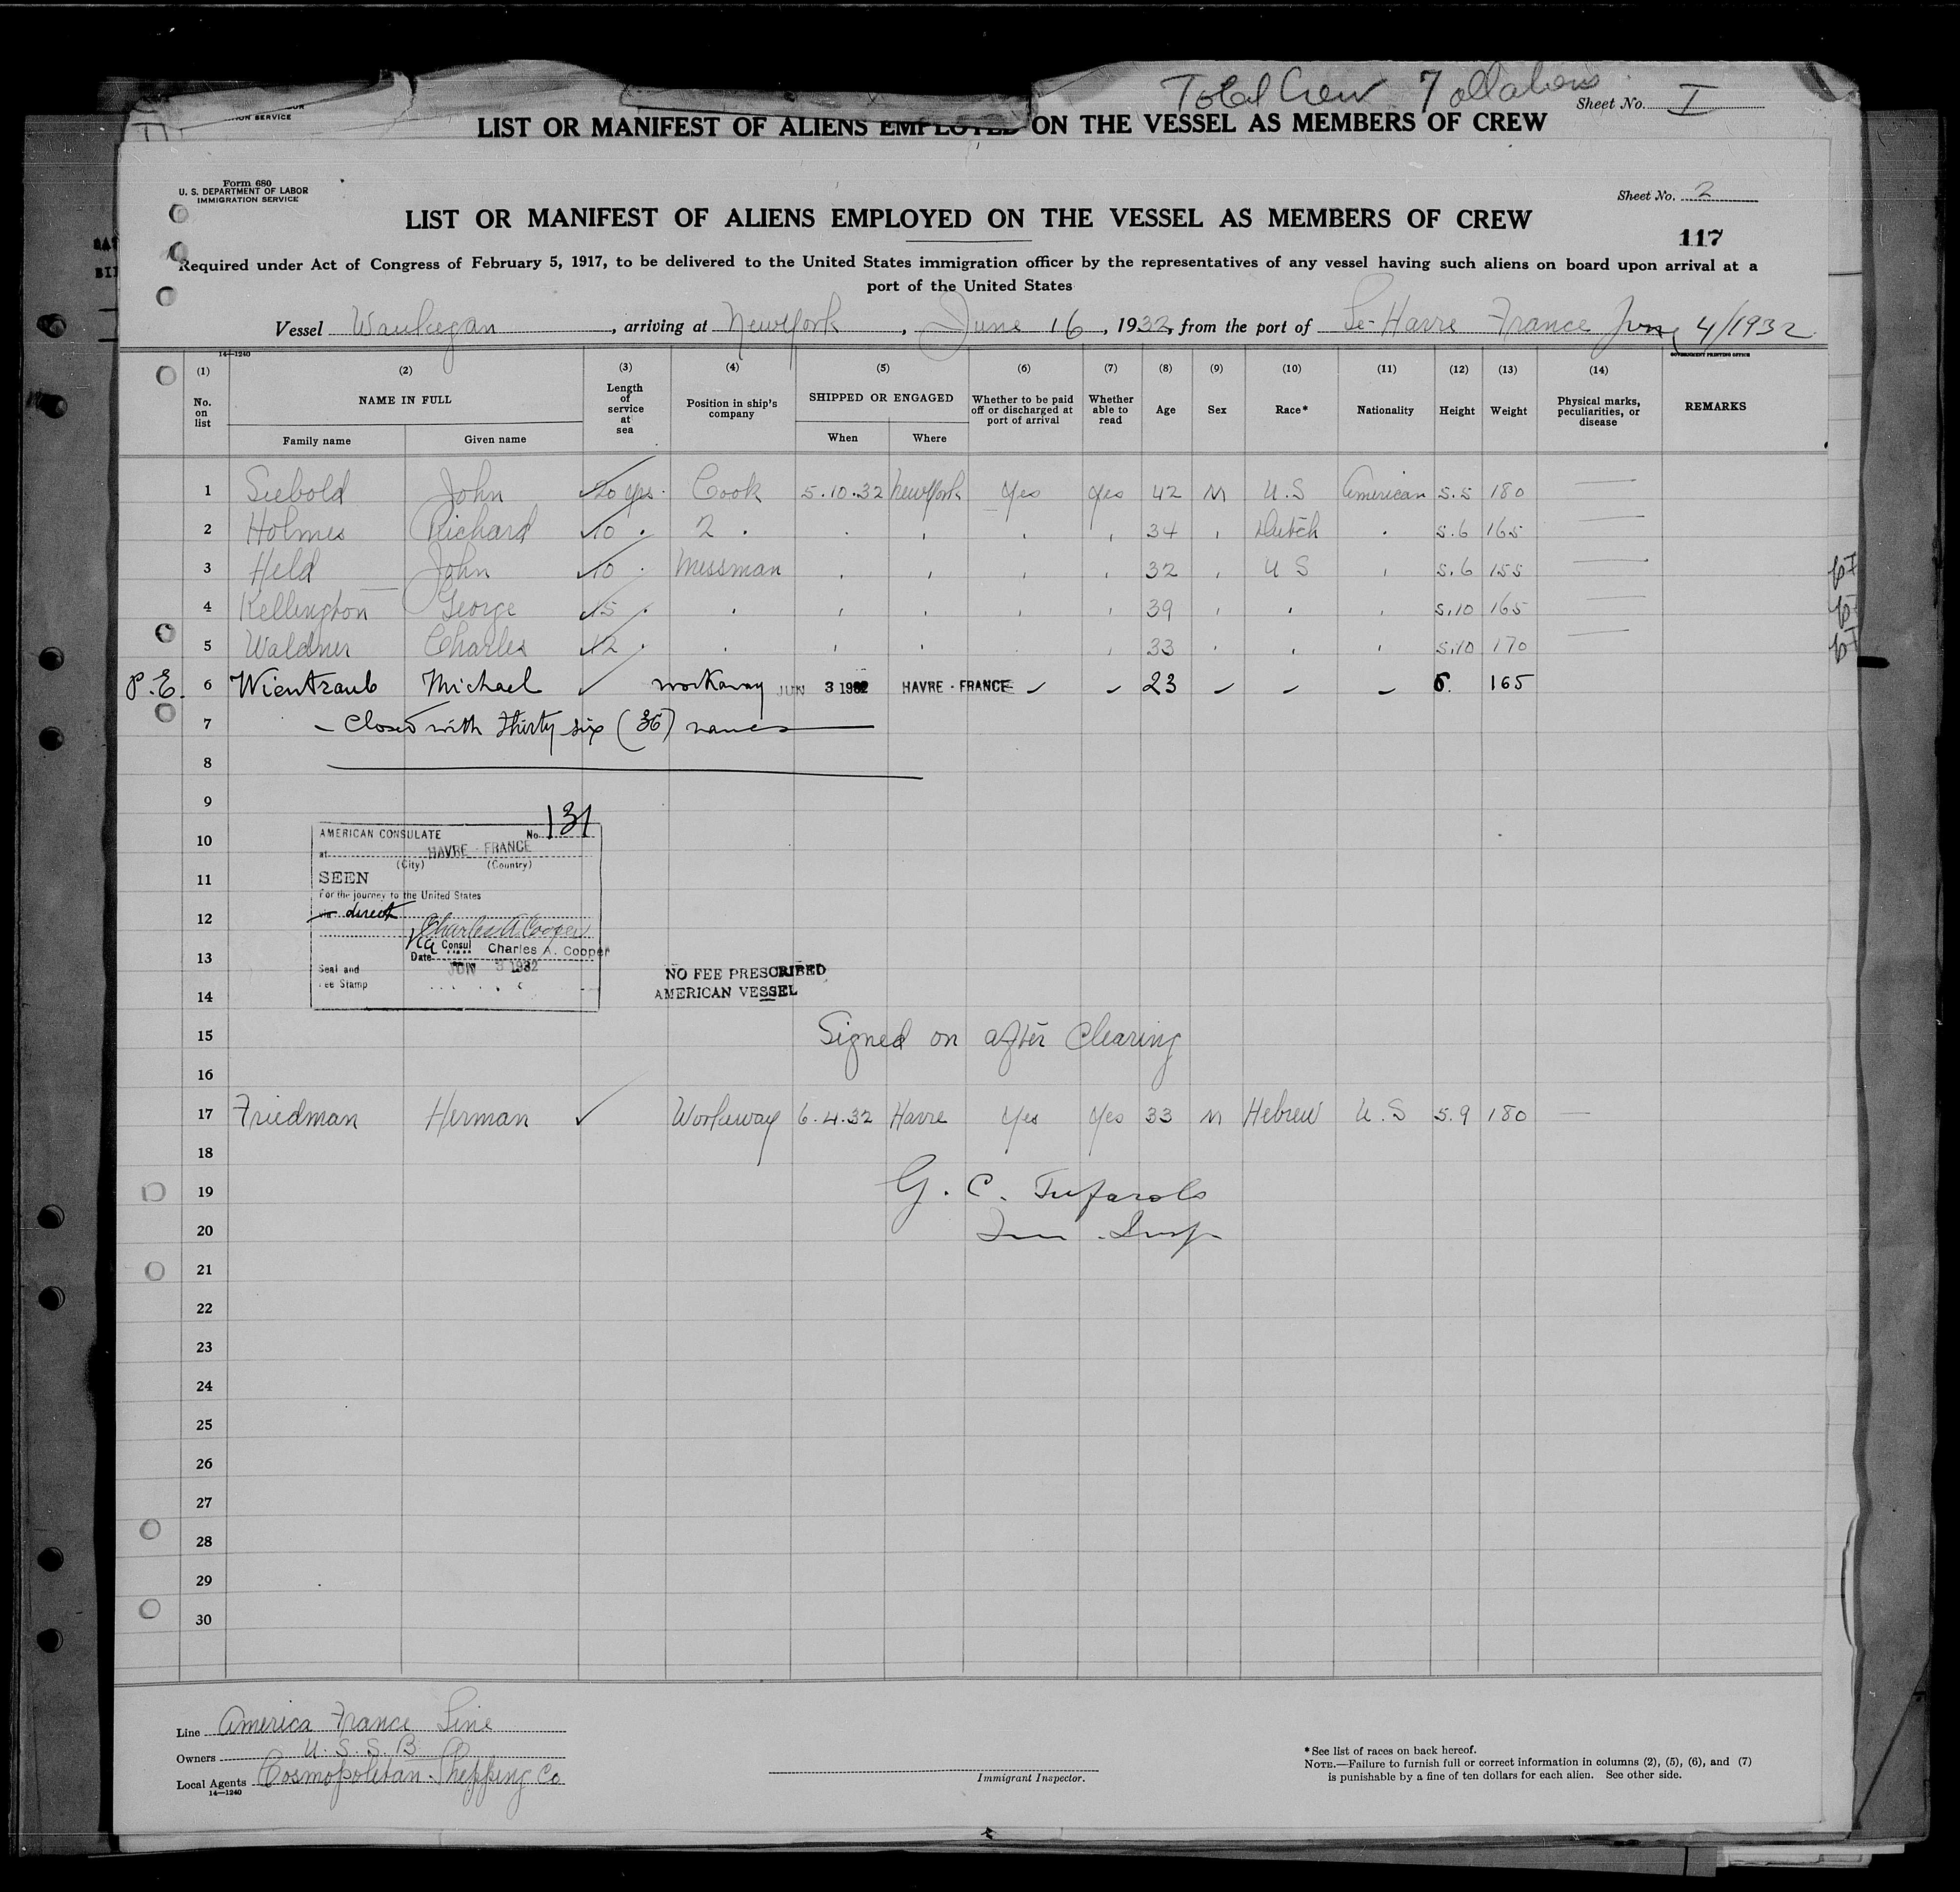 Total Crew 7 all aliens
Sheet No. I
ION SERVICE
LIST OR MANIFEST OF ALIENS EMPLOYED ON THE VESSEL AS MEMBERS OF CREW
Form 680
U. S. DEPARTMENT OF LABOR
IMMIGRATION SERVICE
Sheet No. 2
LIST OR MANIFEST OF ALIENS EMPLOYED ON THE VESSEL AS MEMBERS OF CREW
117
Required under Act of Congress of February 5, 1917, to be delivered to the United States immigration officer by the representatives of any vessel having such aliens on board upon arrival at a
port of the United States
Vessel Waukegan, arriving at New York, June 16, 1932, from the port of Le-Havre France June 4/1932
14—1240
GOVERNMENT PRINTING OFFICE
(1) (2) (3) (4) (5) (6) (7) (8) (9) (10) (11) (12) (13) (14)
No. on list NAME IN FULL Length of service at sea Position in ship's company SHIPPED OR ENGAGED Whether to be paid off or discharged at port of arrival Whether able to read Age Sex Race* Nationality Height Weight Physical marks, peculiarities, or disease REMARKS
Family name Given name When Where
1 Siebold John 20 yrs. Cook 5.10.32 New York Yes Yes 42 M U.S American 5.5 180 —
2 Holmes Richard 10 " 2 " " " " " 34 " Dutch " 5.6 165 —
3 Held John 10 " Messman " " " " 32 " U S " 5.6 155 —
4 Kellington George 15 " " " " " " 39 " " " 5.10 165 —
5 Waldner Charles 12 " " " " " 33 " " " 5.10 170 —
P.E. 6 Wientraub Michael ✓ workaway JUN 3 1932 HAVRE - FRANCE 23 6. 165
7 - Closed with thirty six (36) names
8
9
10
11
12
13
14
AMERICAN CONSULATE No. 131
at HAVRE - FRANCE
(City) (Country)
SEEN
For the journey to the United States
via direct
Charles A. Cooper
Consul Charles A. Cooper
Date JUN 3 1932
Seal and
Fee Stamp
NO FEE PRESCRIBED
AMERICAN VESSEL
15 Signed on after Clearing
16
17 Friedman Herman ✓ Workaway 6.4.32 Havre Yes Yes 33 M Hebrew U.S 5.9 180 —
18
19 G. C.
20 Imm. Insp
21
22
23
24
25
26
27
28
29
30
Line America France Line
Owners U.S.S.B
Local Agents Cosmopolitan Shipping Co
14—1240
Immigrant Inspector.
*See list of races on back hereof.
NOTE.—Failure to furnish full or correct information in columns (2), (5), (6), and (7)
is punishable by a fine of ten dollars for each alien. See other side.